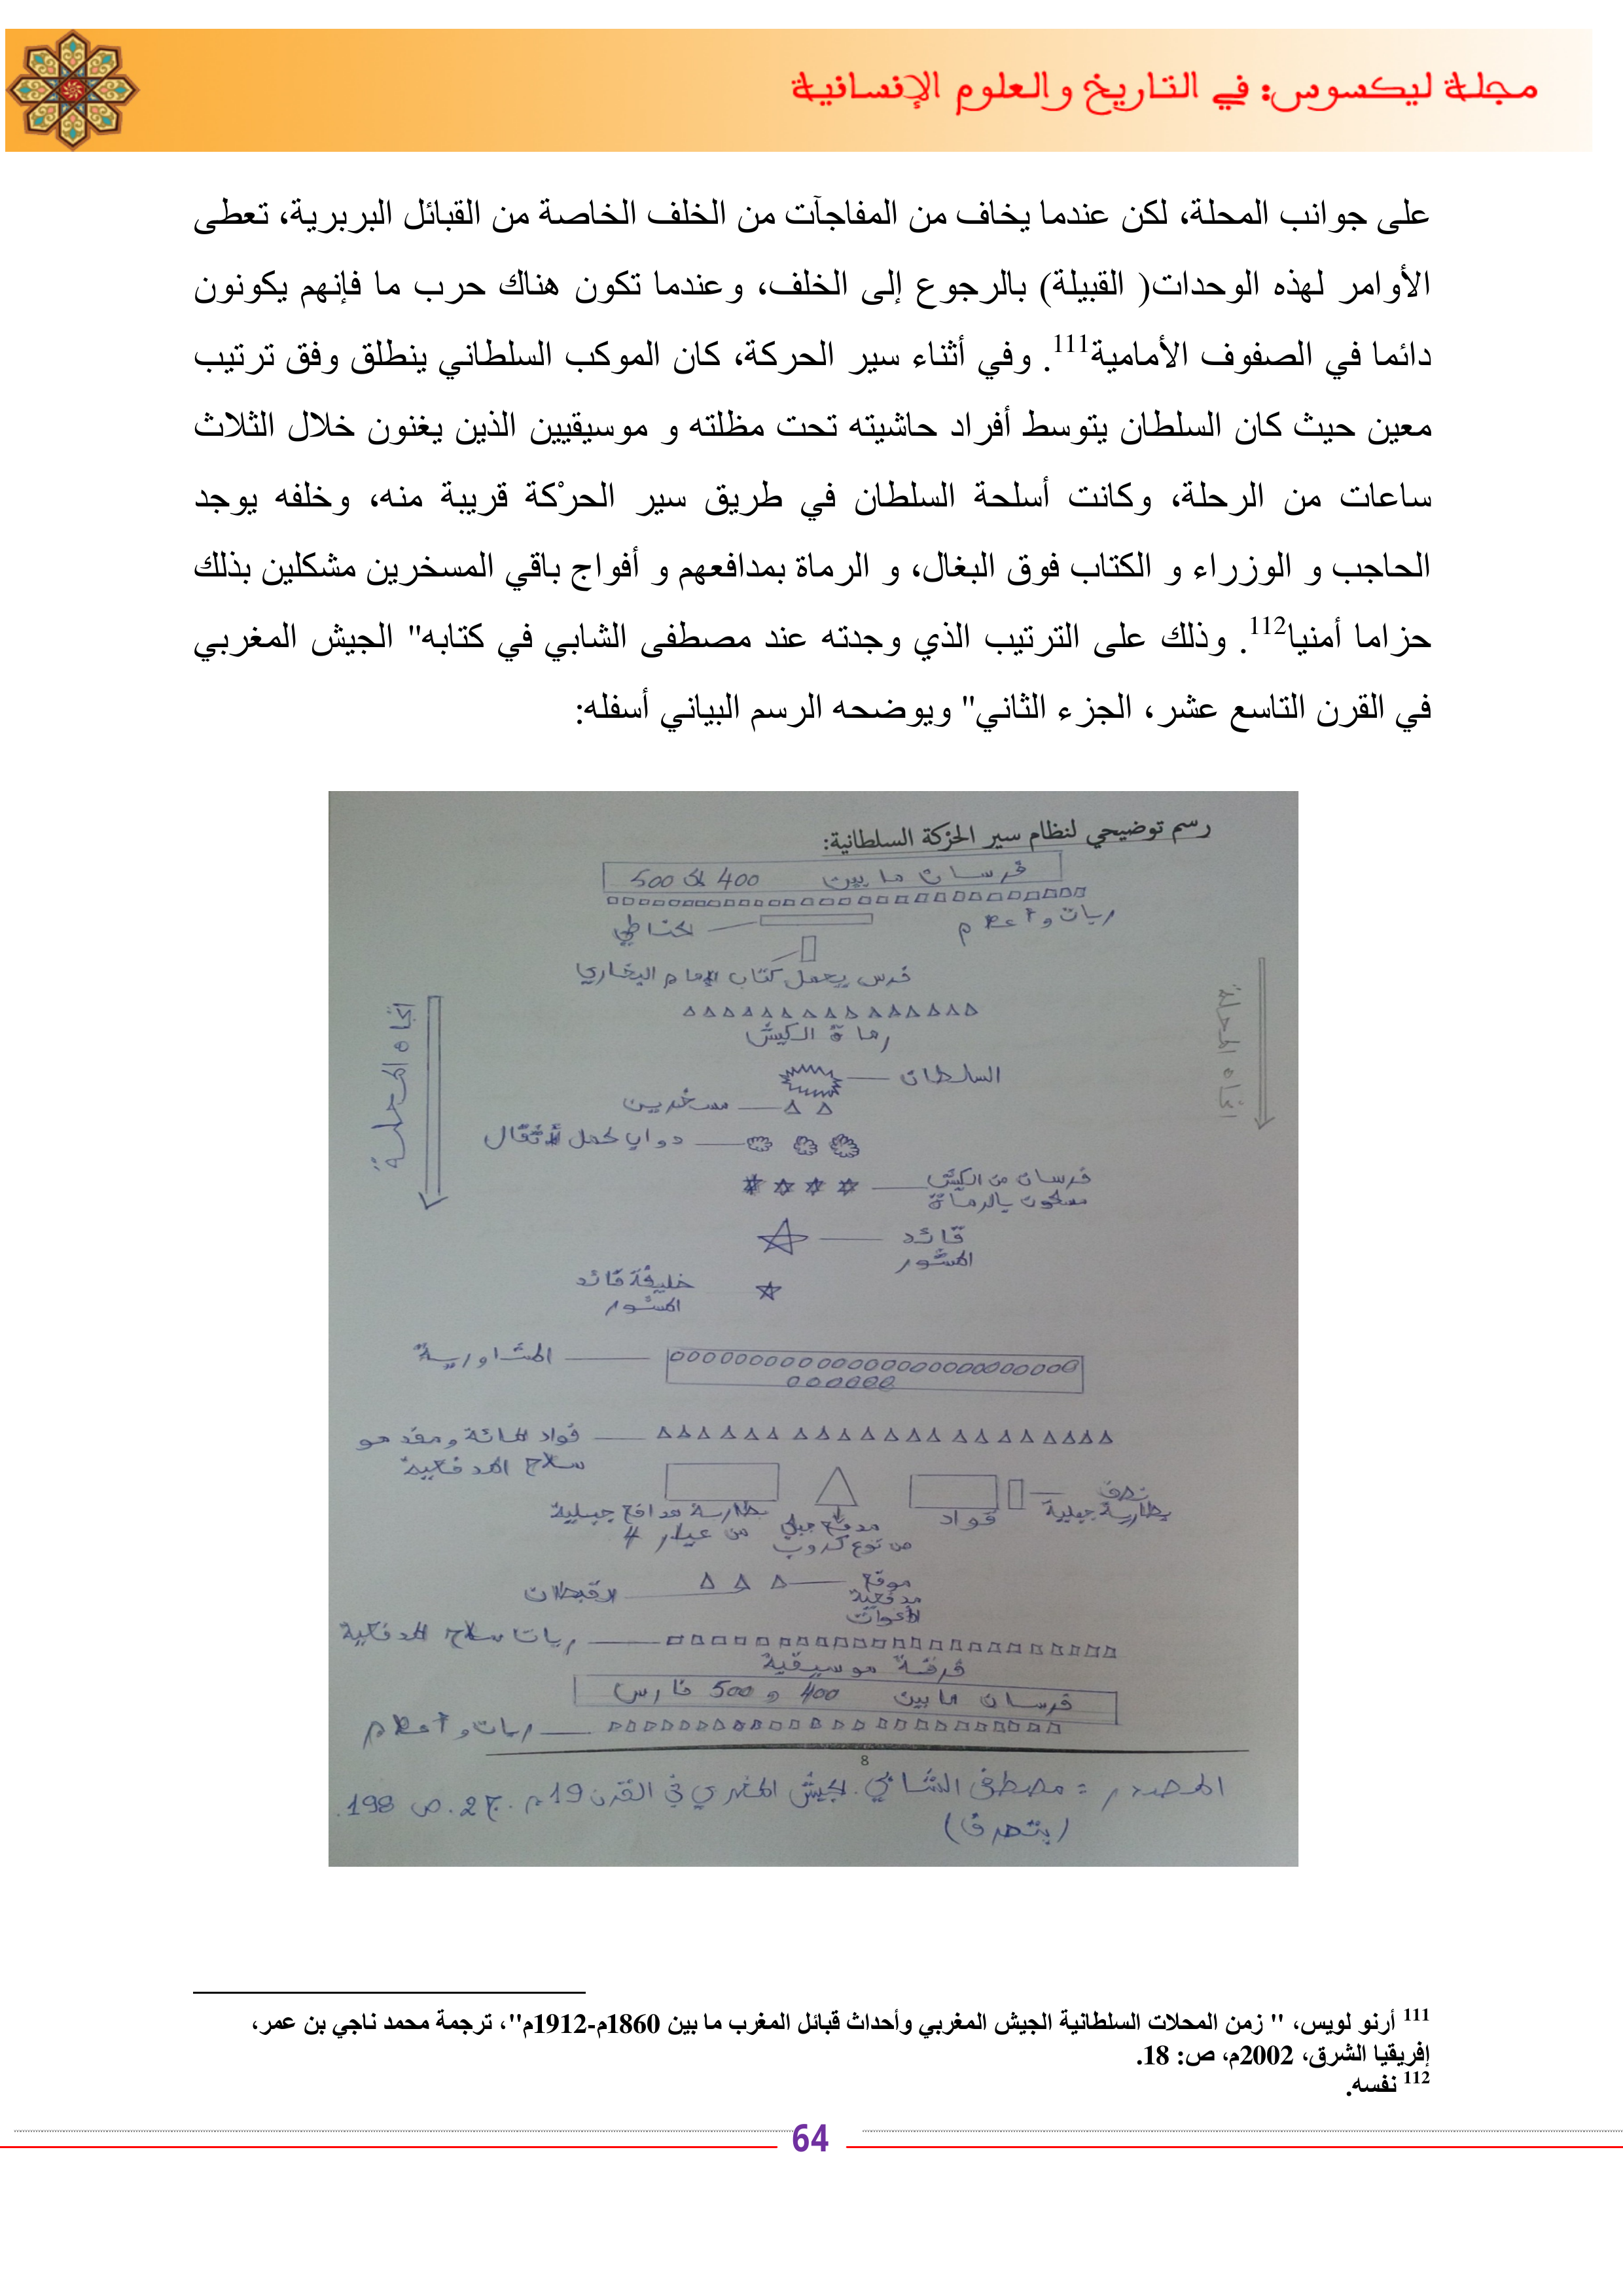 مجلة ليكسوس: في التاريخ والعلوم الإنسانية
على جوانب المحلة، لكن عندما يخاف من المفاجآت من الخلف الخاصة من القبائل البربرية، تعطى
الأوامر لهذه الوحدات( القبيلة) بالرجوع إلى الخلف، وعندما تكون هناك حرب ما فإنهم يكونون
دائما في الصفوف الأمامية111. وفي أثناء سير الحركة، كان الموكب السلطاني ينطلق وفق ترتيب
معين حيث كان السلطان يتوسط أفراد حاشيته تحت مظلته و موسيقيين الذين يغنون خلال الثلاث
ساعات من الرحلة، وكانت أسلحة السلطان في طريق سير الحرْكة قريبة منه، وخلفه يوجد
الحاجب و الوزراء و الكتاب فوق البغال، و الرماة بمدافعهم و أفواج باقي المسخرين مشكلين بذلك
حزاما أمنيا112. وذلك على الترتيب الذي وجدته عند مصطفى الشابي في كتابه" الجيش المغربي
في القرن التاسع عشر، الجزء الثاني" ويوضحه الرسم البياني أسفله:
رسم توضيحي لنظام سير الحرْكة السلطانية:
فرسان ما بين 400 إلى 500
رايات وأعلام
فرس يحمل كتاب الإمام البخاري
رماة الكيش
السلطان
مسخرين
دواب لحمل الأثقال
فرسان من الكيش
مسلحون بالرماة
قائد
المشور
خليفة قائد
المشور
اتجاه المحلة
اتجاه المحلة
المشاورية
قواد المائة ومقدمو
سلاح المدفعية
نصف
بطارية جبلية
قواد
مدفع جبلي
من نوع كروب
بطارية مدافع جبلية
من عيار 4
موقع
مدفعية
القبطان
رايات سلاح المدفعية
فرقة موسيقية
فرسان ما بين 400 و 500 فارس
رايات وأعلام
8
المصدر: مصطفى الشابي. الجيش المغربي في القرن 19م. ج 2. ص 198.
(بتصرف)
111 أرنو لويس، " زمن المحلات السلطانية الجيش المغربي وأحداث قبائل المغرب ما بين 1860م-1912م"، ترجمة محمد ناجي بن عمر،
إفريقيا الشرق، 2002م، ص: 18.
112 نفسه.
64